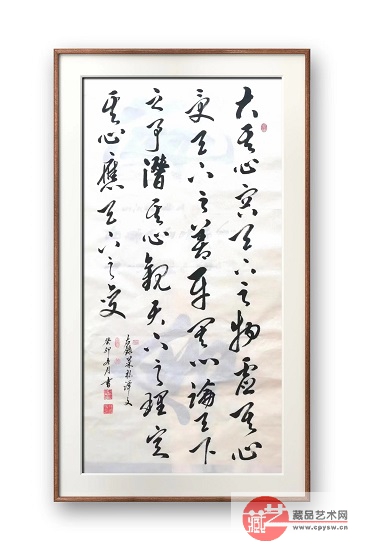 大其心容天下之物虛其心
受天下之善平其心論天下
之事潛其心觀天下之理定
其心應天下之變
錄菜根譚文
癸卯 月書
藏品艺术网
www.cpysw.cn